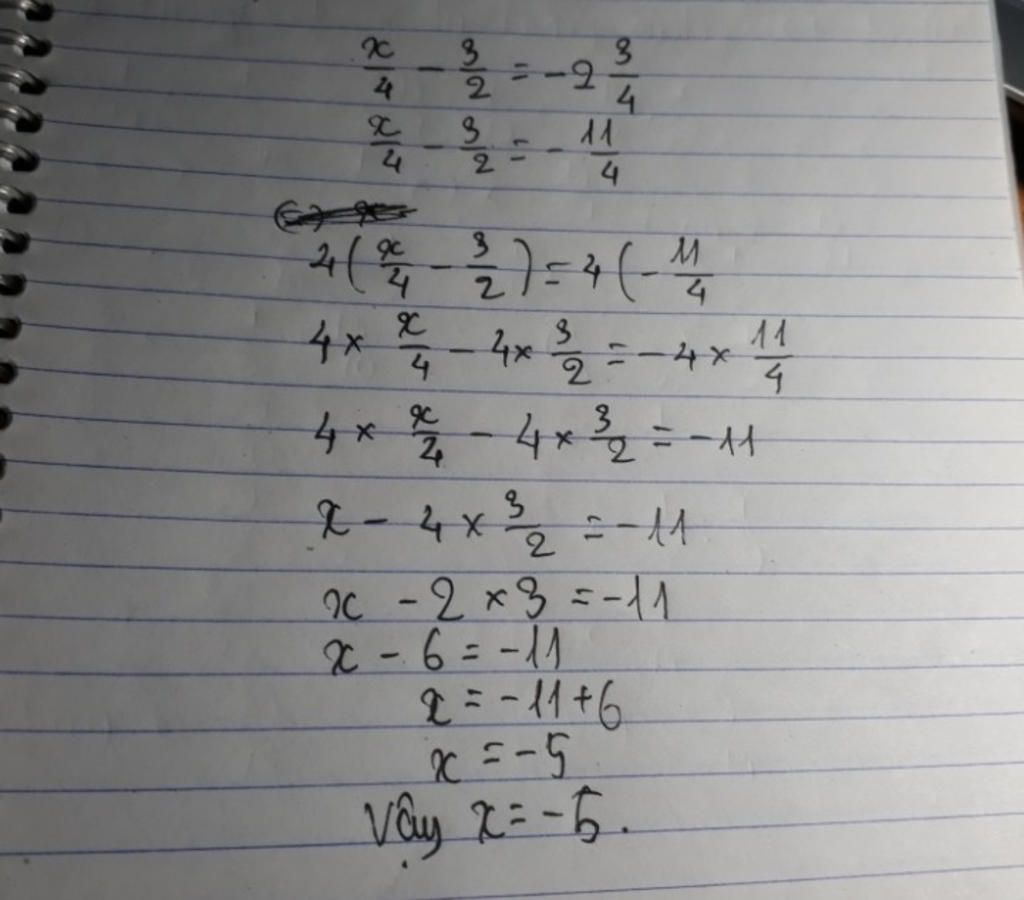 x/4 - 3/2 = -2 3/4
x/4 - 3/2 = - 11/4
4(x/4 - 3/2) = 4(- 11/4
4 × x/4 - 4 × 3/2 = - 4 × 11/4
4 × x/4 - 4 × 3/2 = -11
x - 4 × 3/2 = -11
x - 2 × 3 = -11
x - 6 = -11
x = -11 + 6
x = -5
Vậy x = -5.